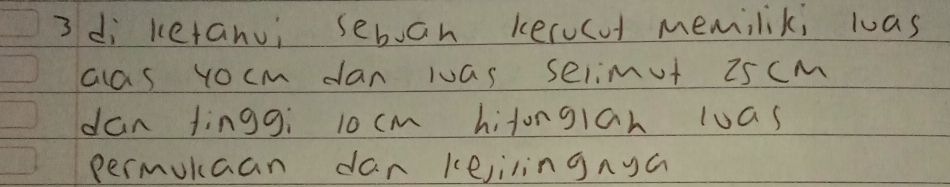 3 di ketahui sebuah kerucut memiliki luas
alas 40 cm dan luas selimut 25 cm
dan tinggi 10 cm hitunglah luas
permukaan dan kelilingnya